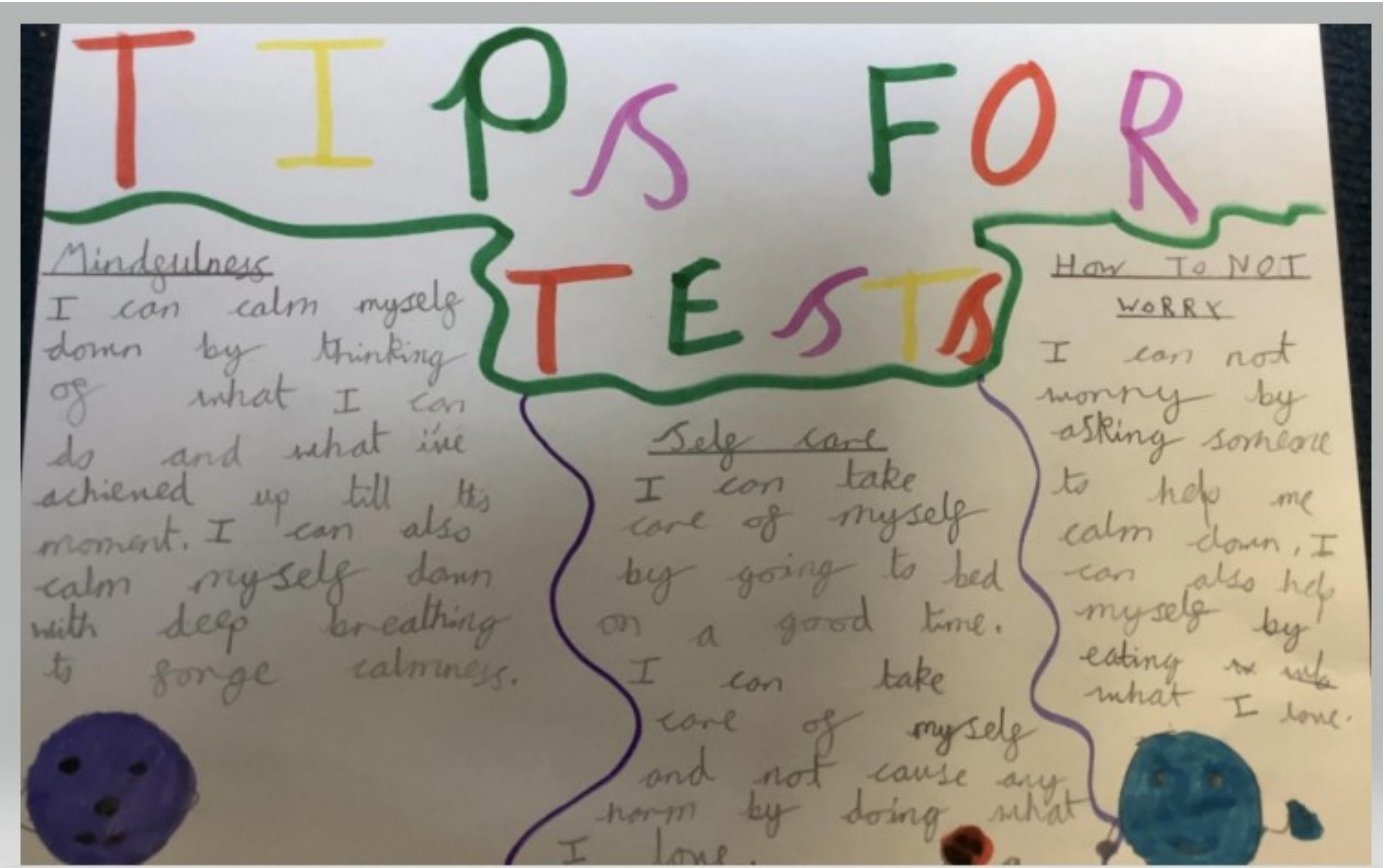 TIPS FOR
TESTS
Mindfulness
I can calm myself
down by thinking
of what I can
do and what i've
achieved up till this
moment. I can also
calm myself down
with deep breathing
to forge calmness.
Self care
I can take
care of myself
by going to bed
on a good time.
I can take
care of myself
and not cause any
harm by doing what
I love.
How To NOT
WORRY
I can not
worry by
asking someone
to help me
calm down, I
can also help
myself by
eating
what I love.